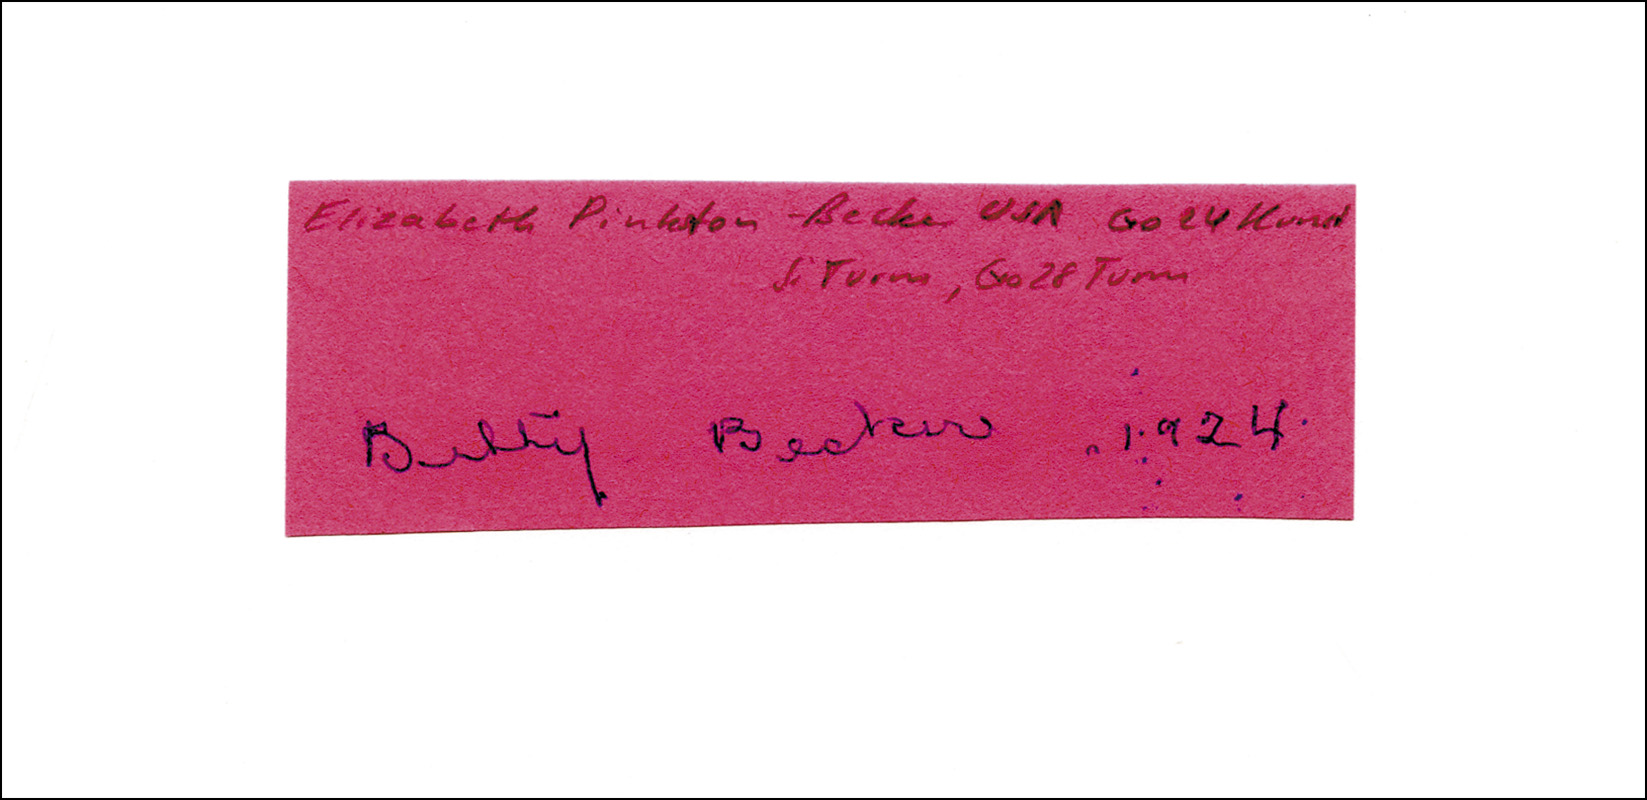 Elizabeth Pinkston-Becker USA Go24Kunst
Si Turm, Go28Turm
Betty Becker 1924